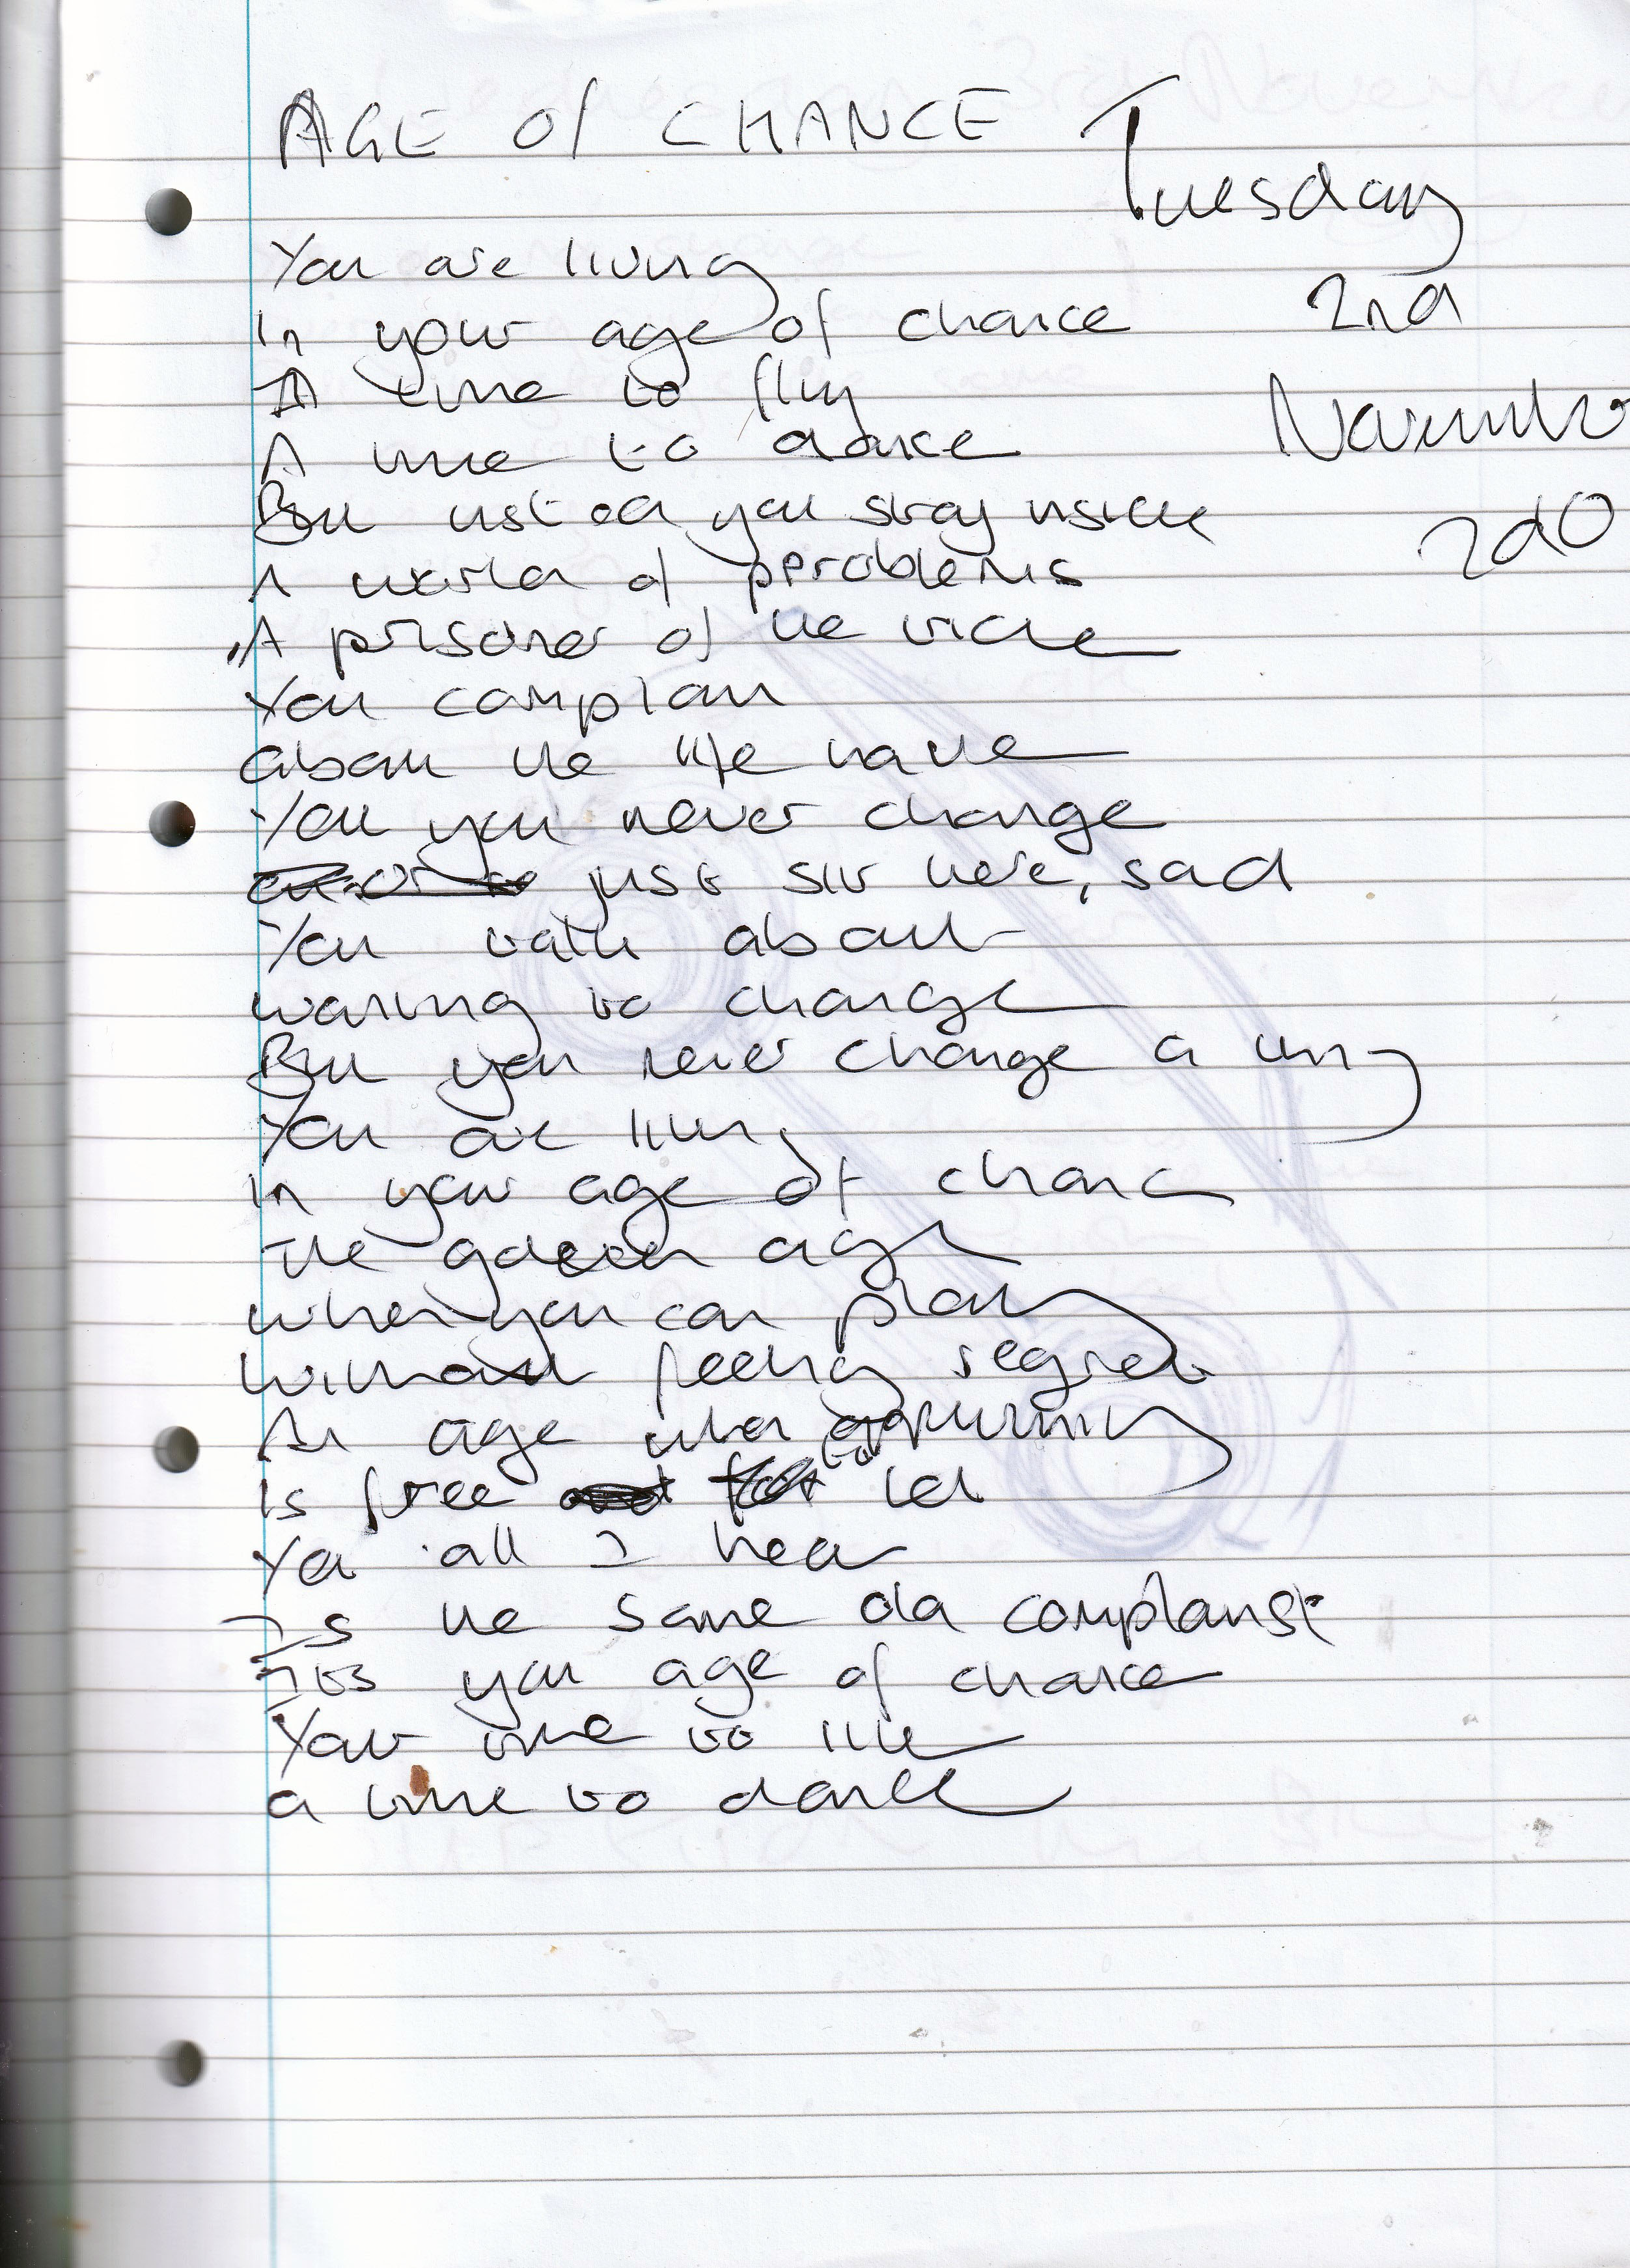 AGE Of CHANCE
Tuesday
2nd
November
2010
You are living
In your age of chance
A time to fly
A time to dance
But instead you stay inside
A world of problems
A prisoner of the
You complain
about the life have
You you never change
just sit here, sad
You talk about
wanting to change
But you never change a thing
You are living
In your age of chance
The golden age
when you can play
without feeling regret
An age when opportunity
Is free to let
Yet all I hear
Is the same old complaints
It's your age of chance
Your time to live
a time to dance